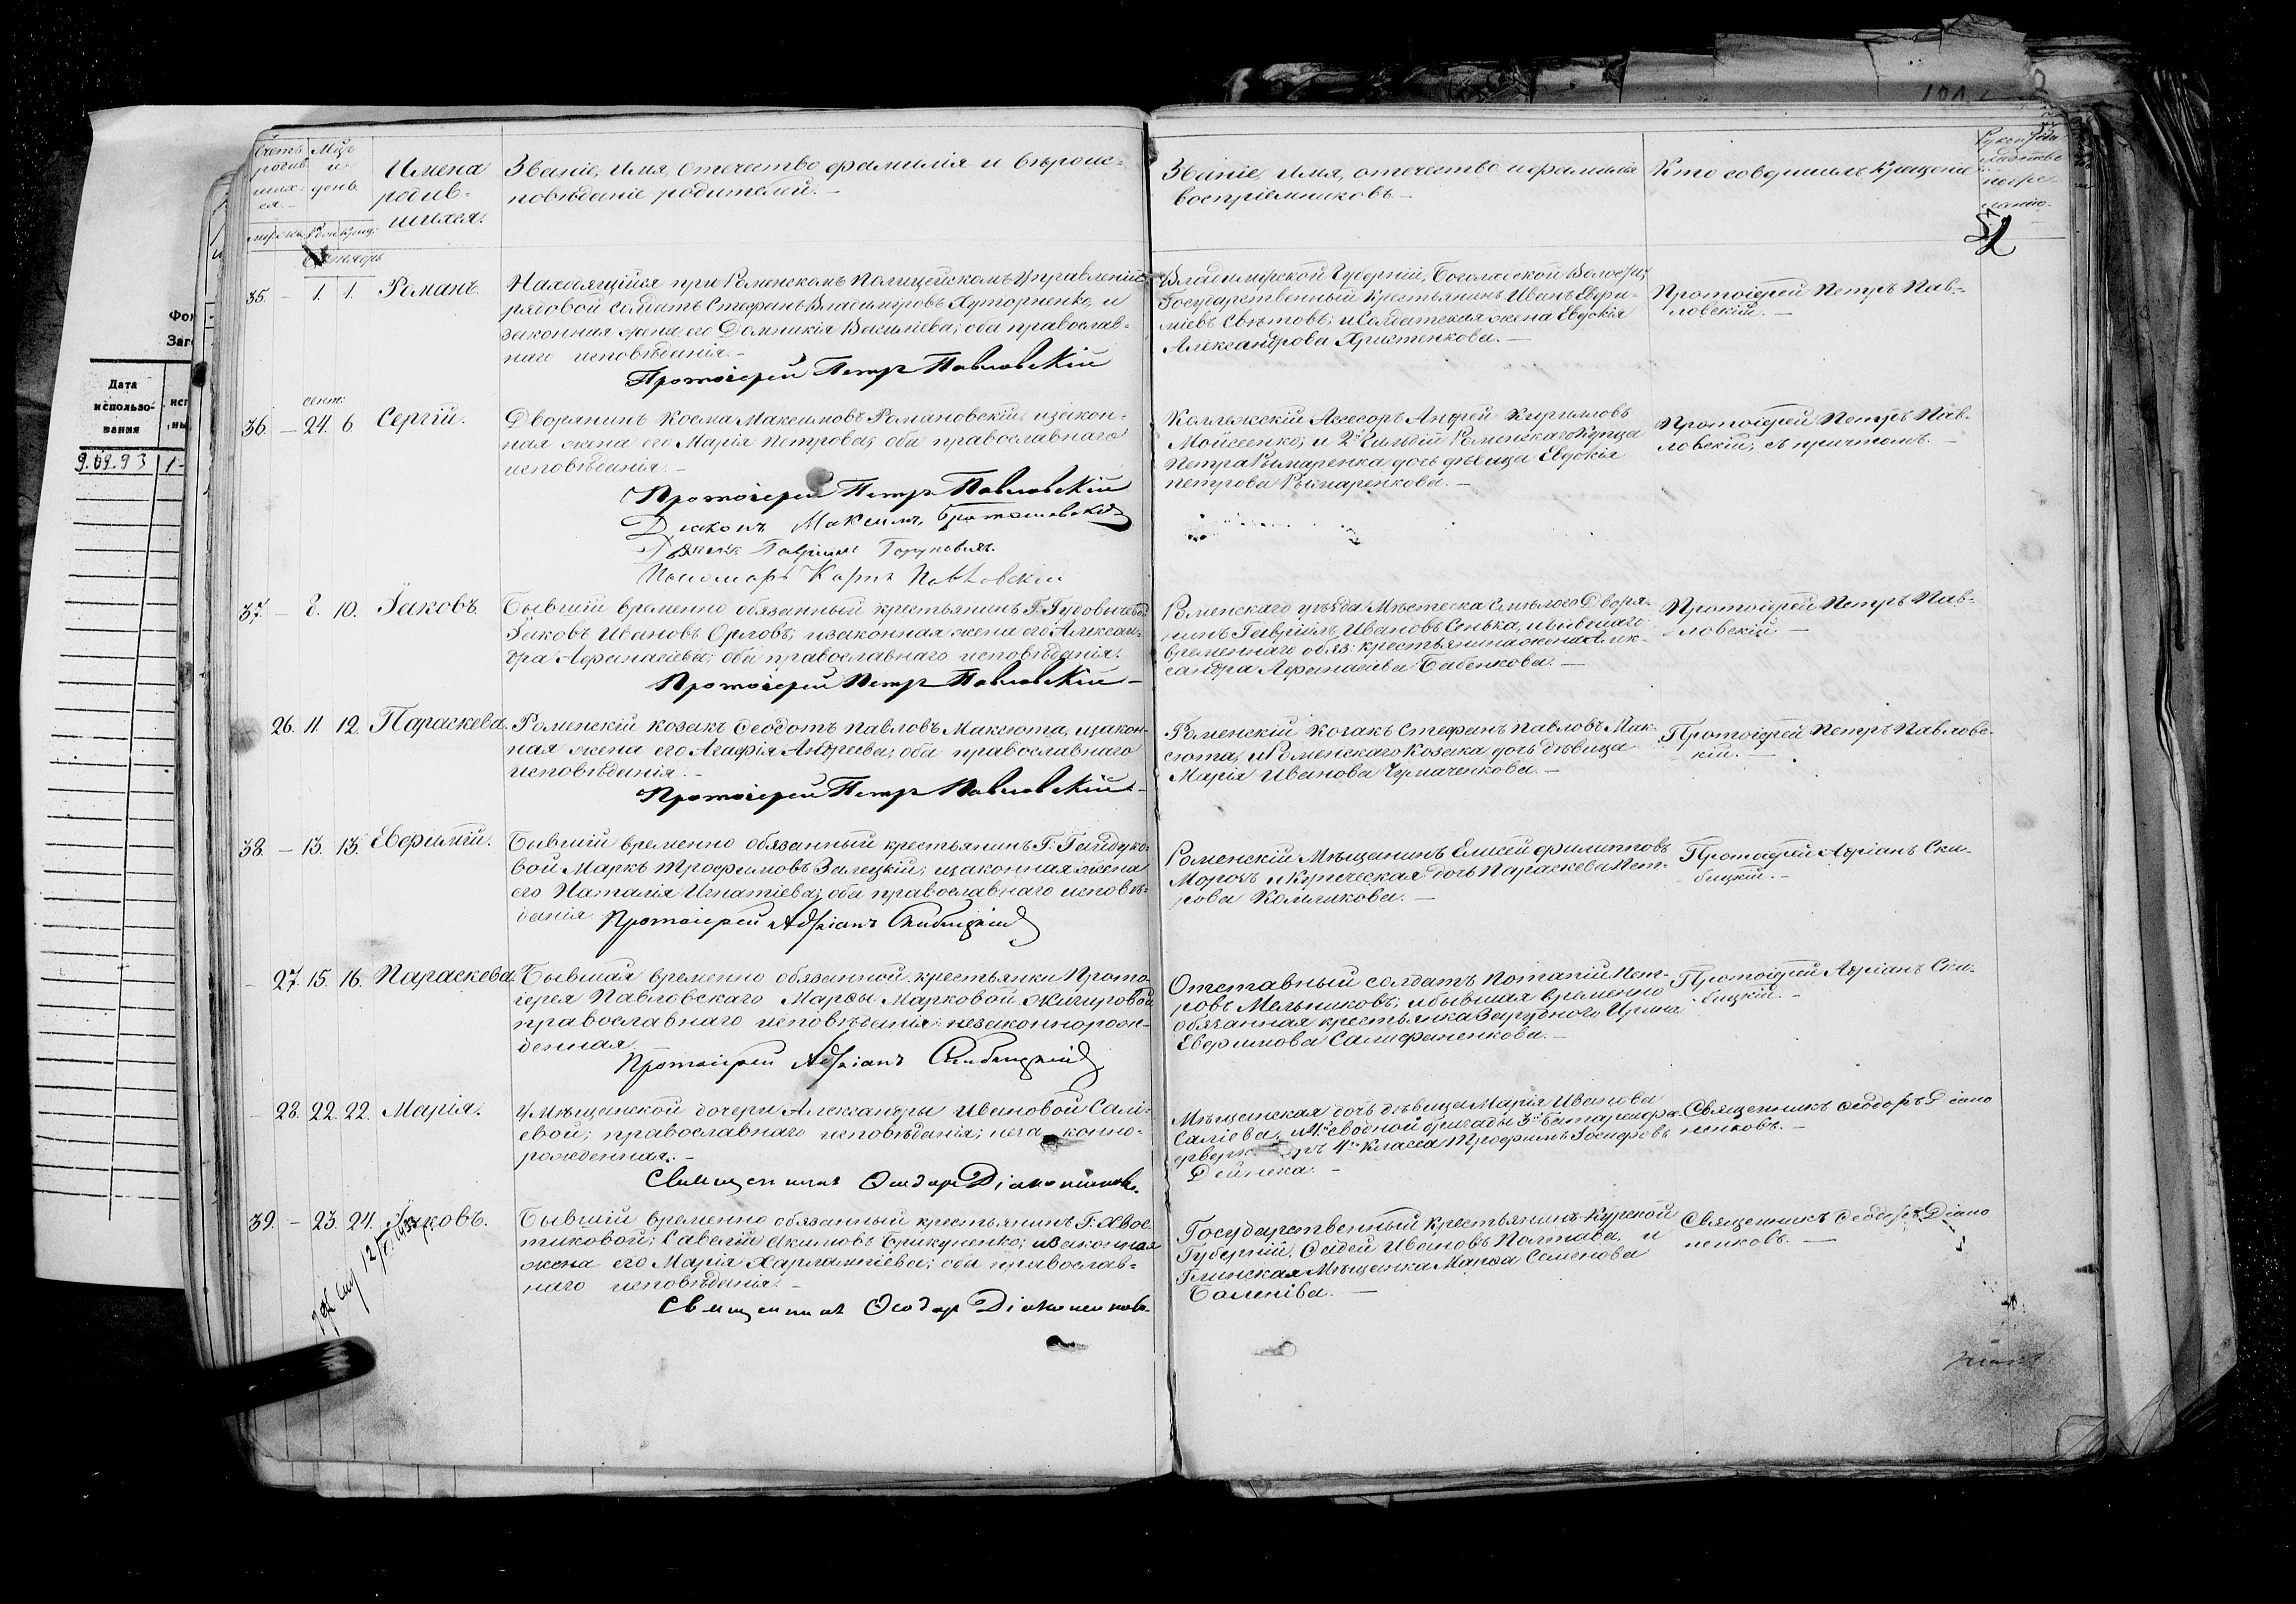 Счетъ родив- шихся.
Мцъ и день.
Имена родив- шихся.
Званіе, имя, отечество фамилія и вѣроис-
повѣданіе родителей.
Званіе, имя, отечество и фамилія
воспріемниковъ.
Кто совершилъ крещеніе
52
Октябрь
35. – 1. 1. Романъ.
Находящійся при Роменскомъ Полицейскомъ Управленіи
рядовой солдатъ Стефанъ Владиміровъ Хуторненко, и
законная жена его Домникія Васильева; оба православ-
наго исповѣданія. –
Протоіерей Петръ Павловскій
Владимірской Губерніи, Волости,
Государственный крестьянинъ Иванъ Евфи-
міевъ Свѣтовъ; и Солдатская жена Евдокія
Александрова Христенкова. –
Протоіерей Петръ Пав-
ловскій. –
сент:
36. – 24. 6 Сергій.
Дворянинъ Косма Максимовъ Романовскій, изакон-
ная жена его Марія Петрова; оба православнаго
исповѣданія. –
Протоіерей Петръ Павловскій
Діаконъ Максимъ
Дьячекъ Гавріилъ
Пономарь Карпъ Павловскій
Коллежскій Асесоръ Андрей Кирилловъ
Мойсеенко, и 2й Гильдіи Роменскаго Купца
Петра Рымаренка дочь дѣвица Евдокія
Петрова Рымаренкова. –
Протоіерей Петръ Пав-
ловскій, съ причтомъ. –
37. – 8. 10. Іаковъ
Бывшій временно обязанный крестьянинъ Г. Гудовичевой
Іаковъ Ивановъ Орловъ, изаконная жена его Алексан-
дра Афанасіева; оба православнаго исповѣданія.
Протоіерей Петръ Павловскій –
Роменскаго уѣзда Мѣстечка Смѣлого Дворя-
нинъ Гавріилъ Ивановъ Сенька, ибывшаго
временнаго обяз: крестьянина жена Алек-
сандра Афанасіева Бабенкова. –
Протоіерей Петръ Пав-
ловскій –
26. 11. 12. Параскева.
Роменскій козакъ Ѳеодотъ Павловъ Максюта, изакон-
ная жена его Агафія Андреева; оба православнаго
исповѣданія. –
Протоіерей Петръ Павловскій –
Роменскій Козакъ Стефанъ Павловъ Мак-
сюта, и Роменскаго Козака дочь дѣвица
Марія Иванова Чумаченкова. –
Протоіерей Петръ Павловс-
кій. –
38. – 13. 13. Евфимій.
Бывшій временно обязанный крестьянинъ Г. Гайдуко-
вой Маркъ Трофимовъ Залецкій; изаконная жена
его Наталія Игнатіева; оба православнаго исповѣ-
данія. Протоіерей Адріанъ Скибицкій
Роменскій Мѣщанинъ Елисей Филипповъ
Морозъ и Купеческая дочь Параскева Пет-
рова Колмикова. –
Протоіерей Адріанъ Ски-
бицкій. –
– 27. 15. 16. Параскева.
Бывшая временно обязанной крестьянки Прото-
іерея Павловскаго Марѳы Марковой
православнаго исповѣданія незаконнорож-
денная.
Протоіерей Адріанъ Скибицкій
Отставный солдатъ Потапій Пет-
ровъ Мельниковъ, ибывшая временно
обязанная крестьянка Зарудного Ирина
Евфимова Салифаненкова. –
Протоіерей Адріанъ Ски-
бицкій. –
– 28. 22. 22. Марія.
У Мѣщанской дочери Александры Ивановой Салі-
евой; православнаго исповѣданія; незаконно-
рожденная. –
Священникъ Ѳеодоръ Діаконенковъ.
Мѣщанская дочь дѣвица Марія Иванова
Саліева, и 4й сводной бригады 3й батареи фе-
ерверкеръ 4го класса Трофимъ Іосифовъ
Дейнека. –
Священникъ Ѳеодоръ Діако
ненковъ. –
39. – 23. 24. Іаковъ.
Бывшій временно обязанный крестьянинъ Г. Хвос-
тиковой; Савелій Акимовъ Брикуненко; изаконная
жена его Марія Харлампіева; оба православ-
наго исповѣданія. –
Священникъ Ѳеодоръ Діаконенковъ.
Государственный крестьянинъ Курской
Губерніи, Ѳадей Ивановъ Полтава, и
Глинская Мѣщанка Марѳа Семенова
Баленіва. –
Священникъ Ѳеодоръ Діако
ненковъ. –
Дата
использо-
вания
9.09.93